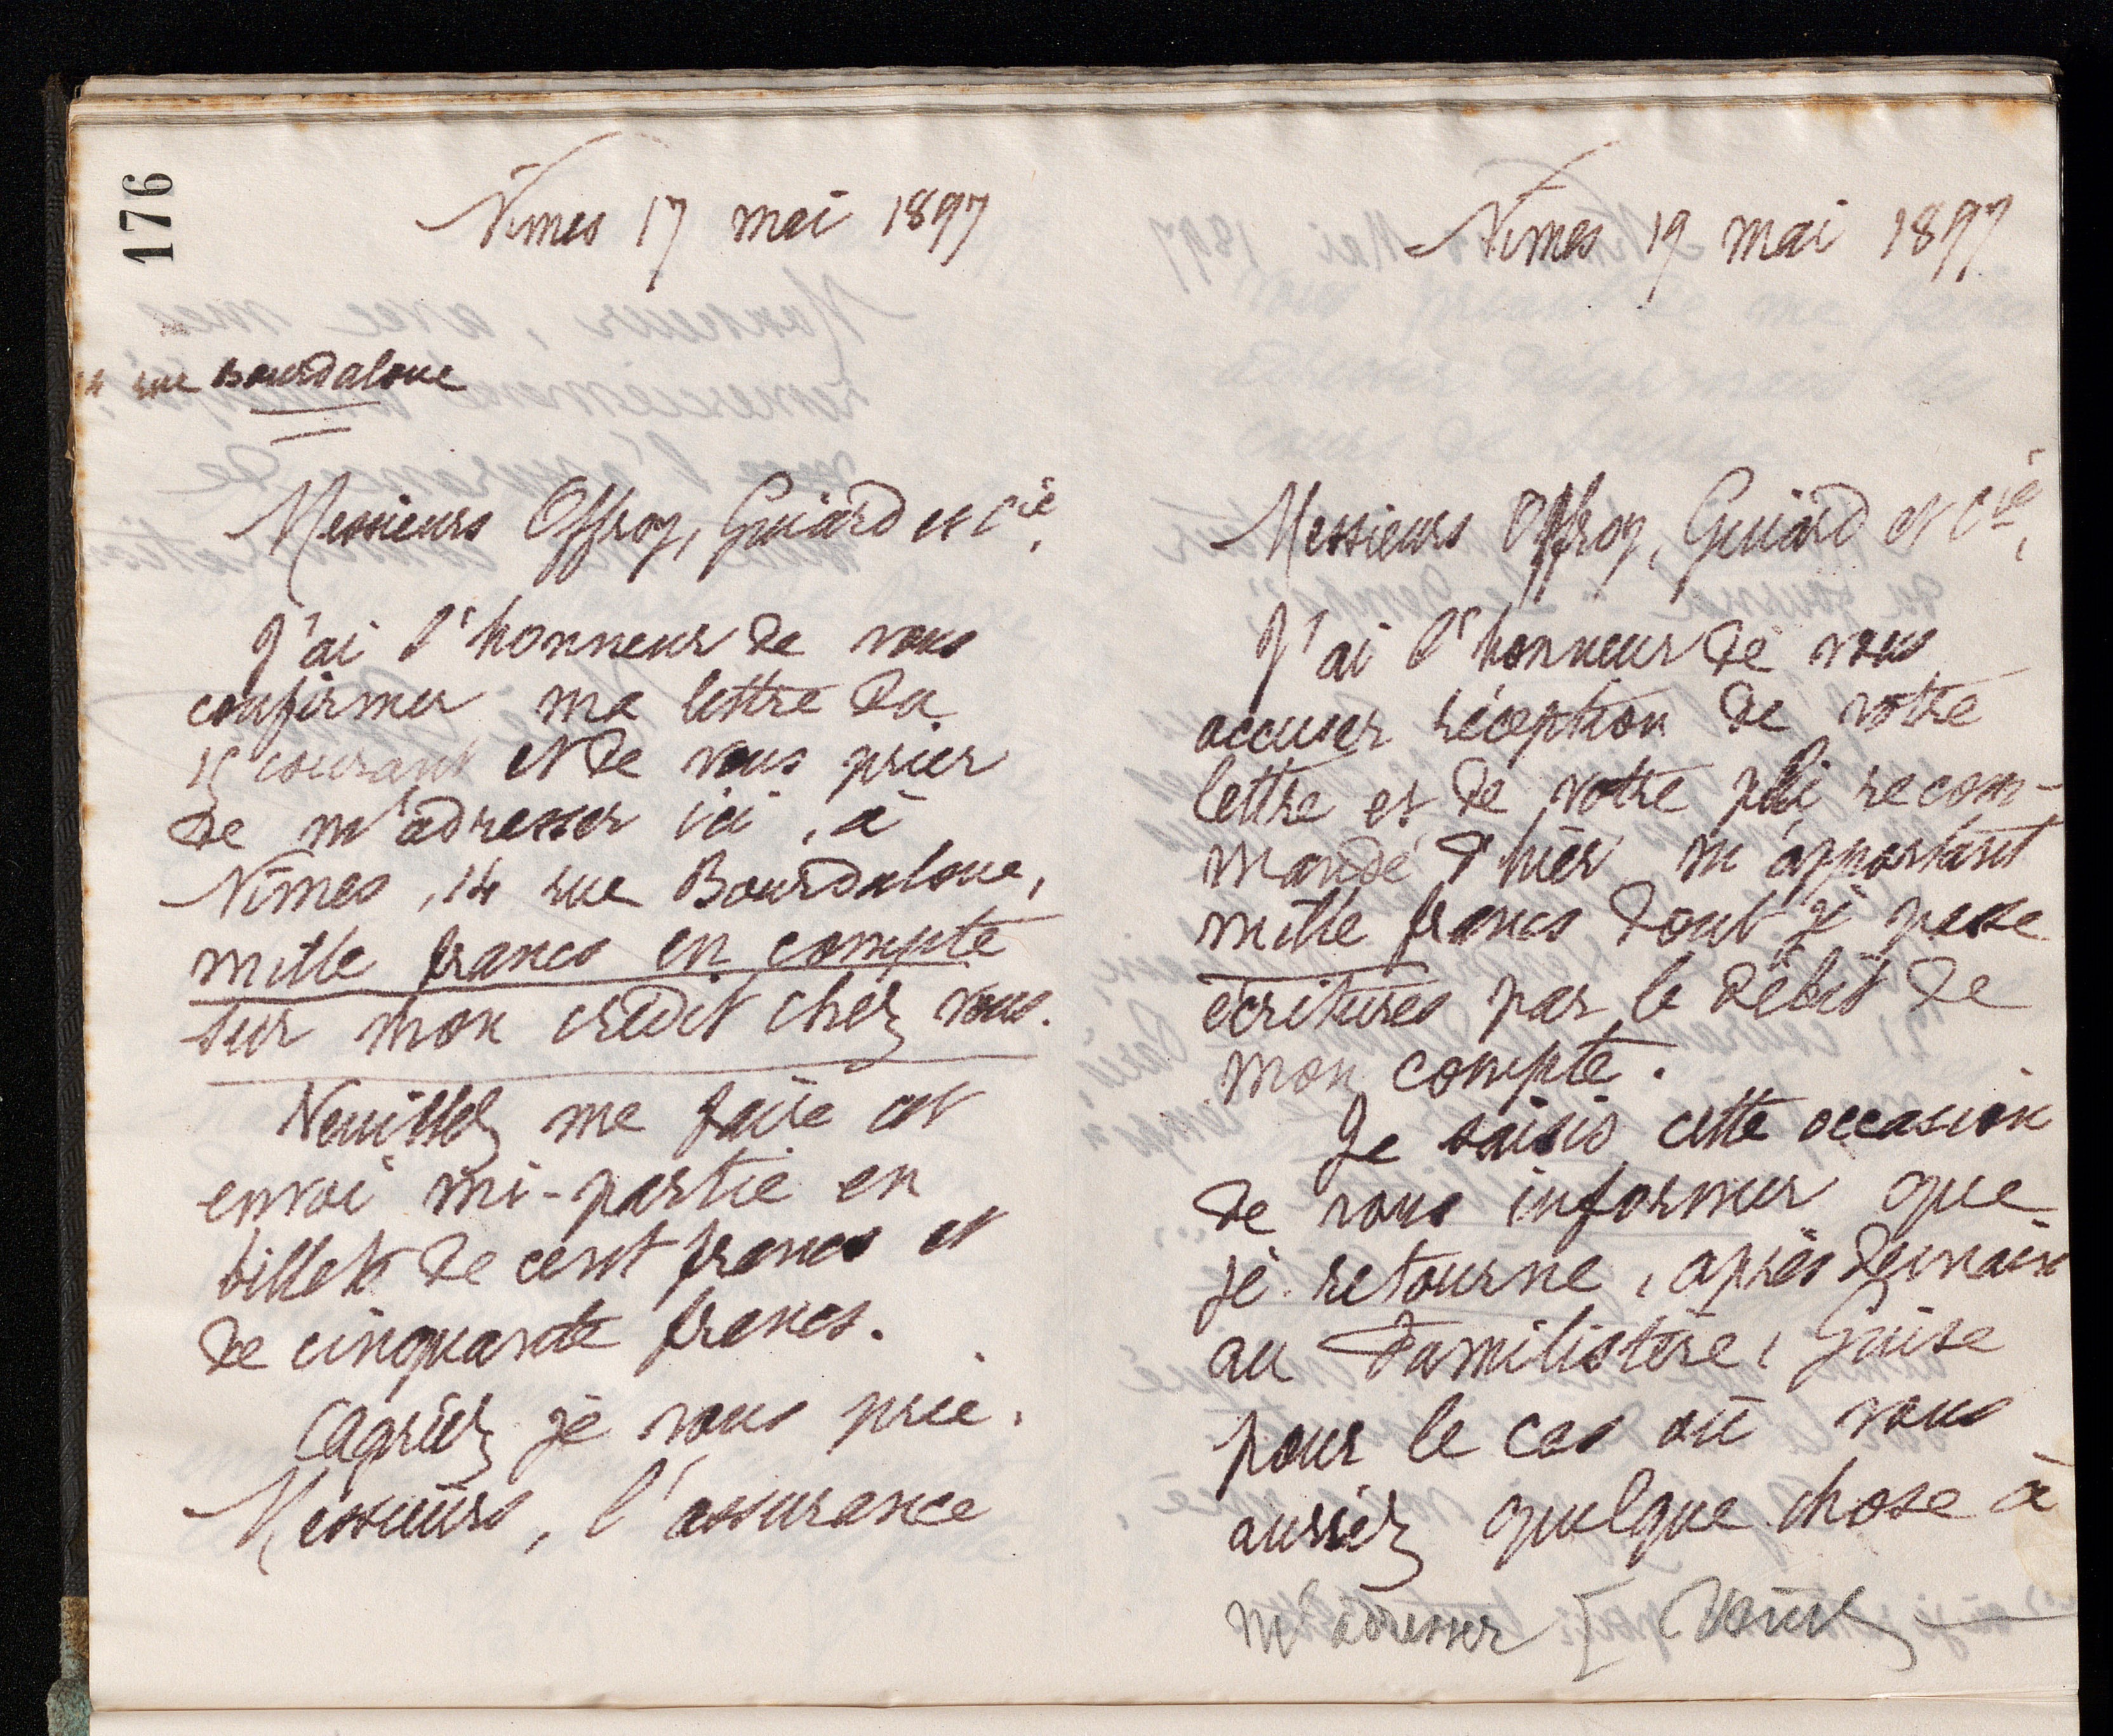 176
Nîmes 17 mai 1897
14 rue Bourdaloue
Messieurs Offroy, Guiard et Cie,
J'ai l'honneur de vous
confirmer ma lettre du
15 courant et de vous prier
de m'adresser ici, à
Nîmes, 14 rue Bourdaloue,
mille francs en compte
sur mon crédit chez vous.
Veuillez me faire cet
envoi mi-partie en
billets de cent francs et
de cinquante francs.
Agréez je vous prie,
Messieurs, l'assurance
Nîmes 19 mai 1897
Messieurs Offroy, Guiard et Cie,
J'ai l'honneur de vous
accuser réception de votre
lettre et de votre pli recom-
mandé d'hier m'apportant
mille francs dont je passe
écritures par le débit de
mon compte.
Je saisis cette occasion
de vous informer que
je retourne, après demain
au Familistère, Guise
pour le cas où vous
auriez quelque chose à
m'adresser [ Veuillez